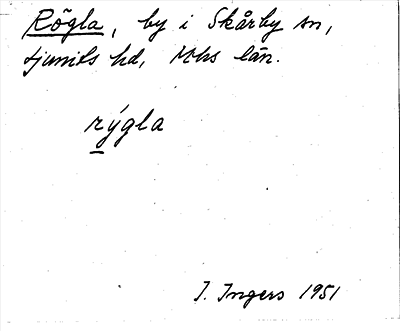 Rögla, by i Skårby sn,
Ljunits hd, Mhs län.
rýgla
I. Ingers 1951